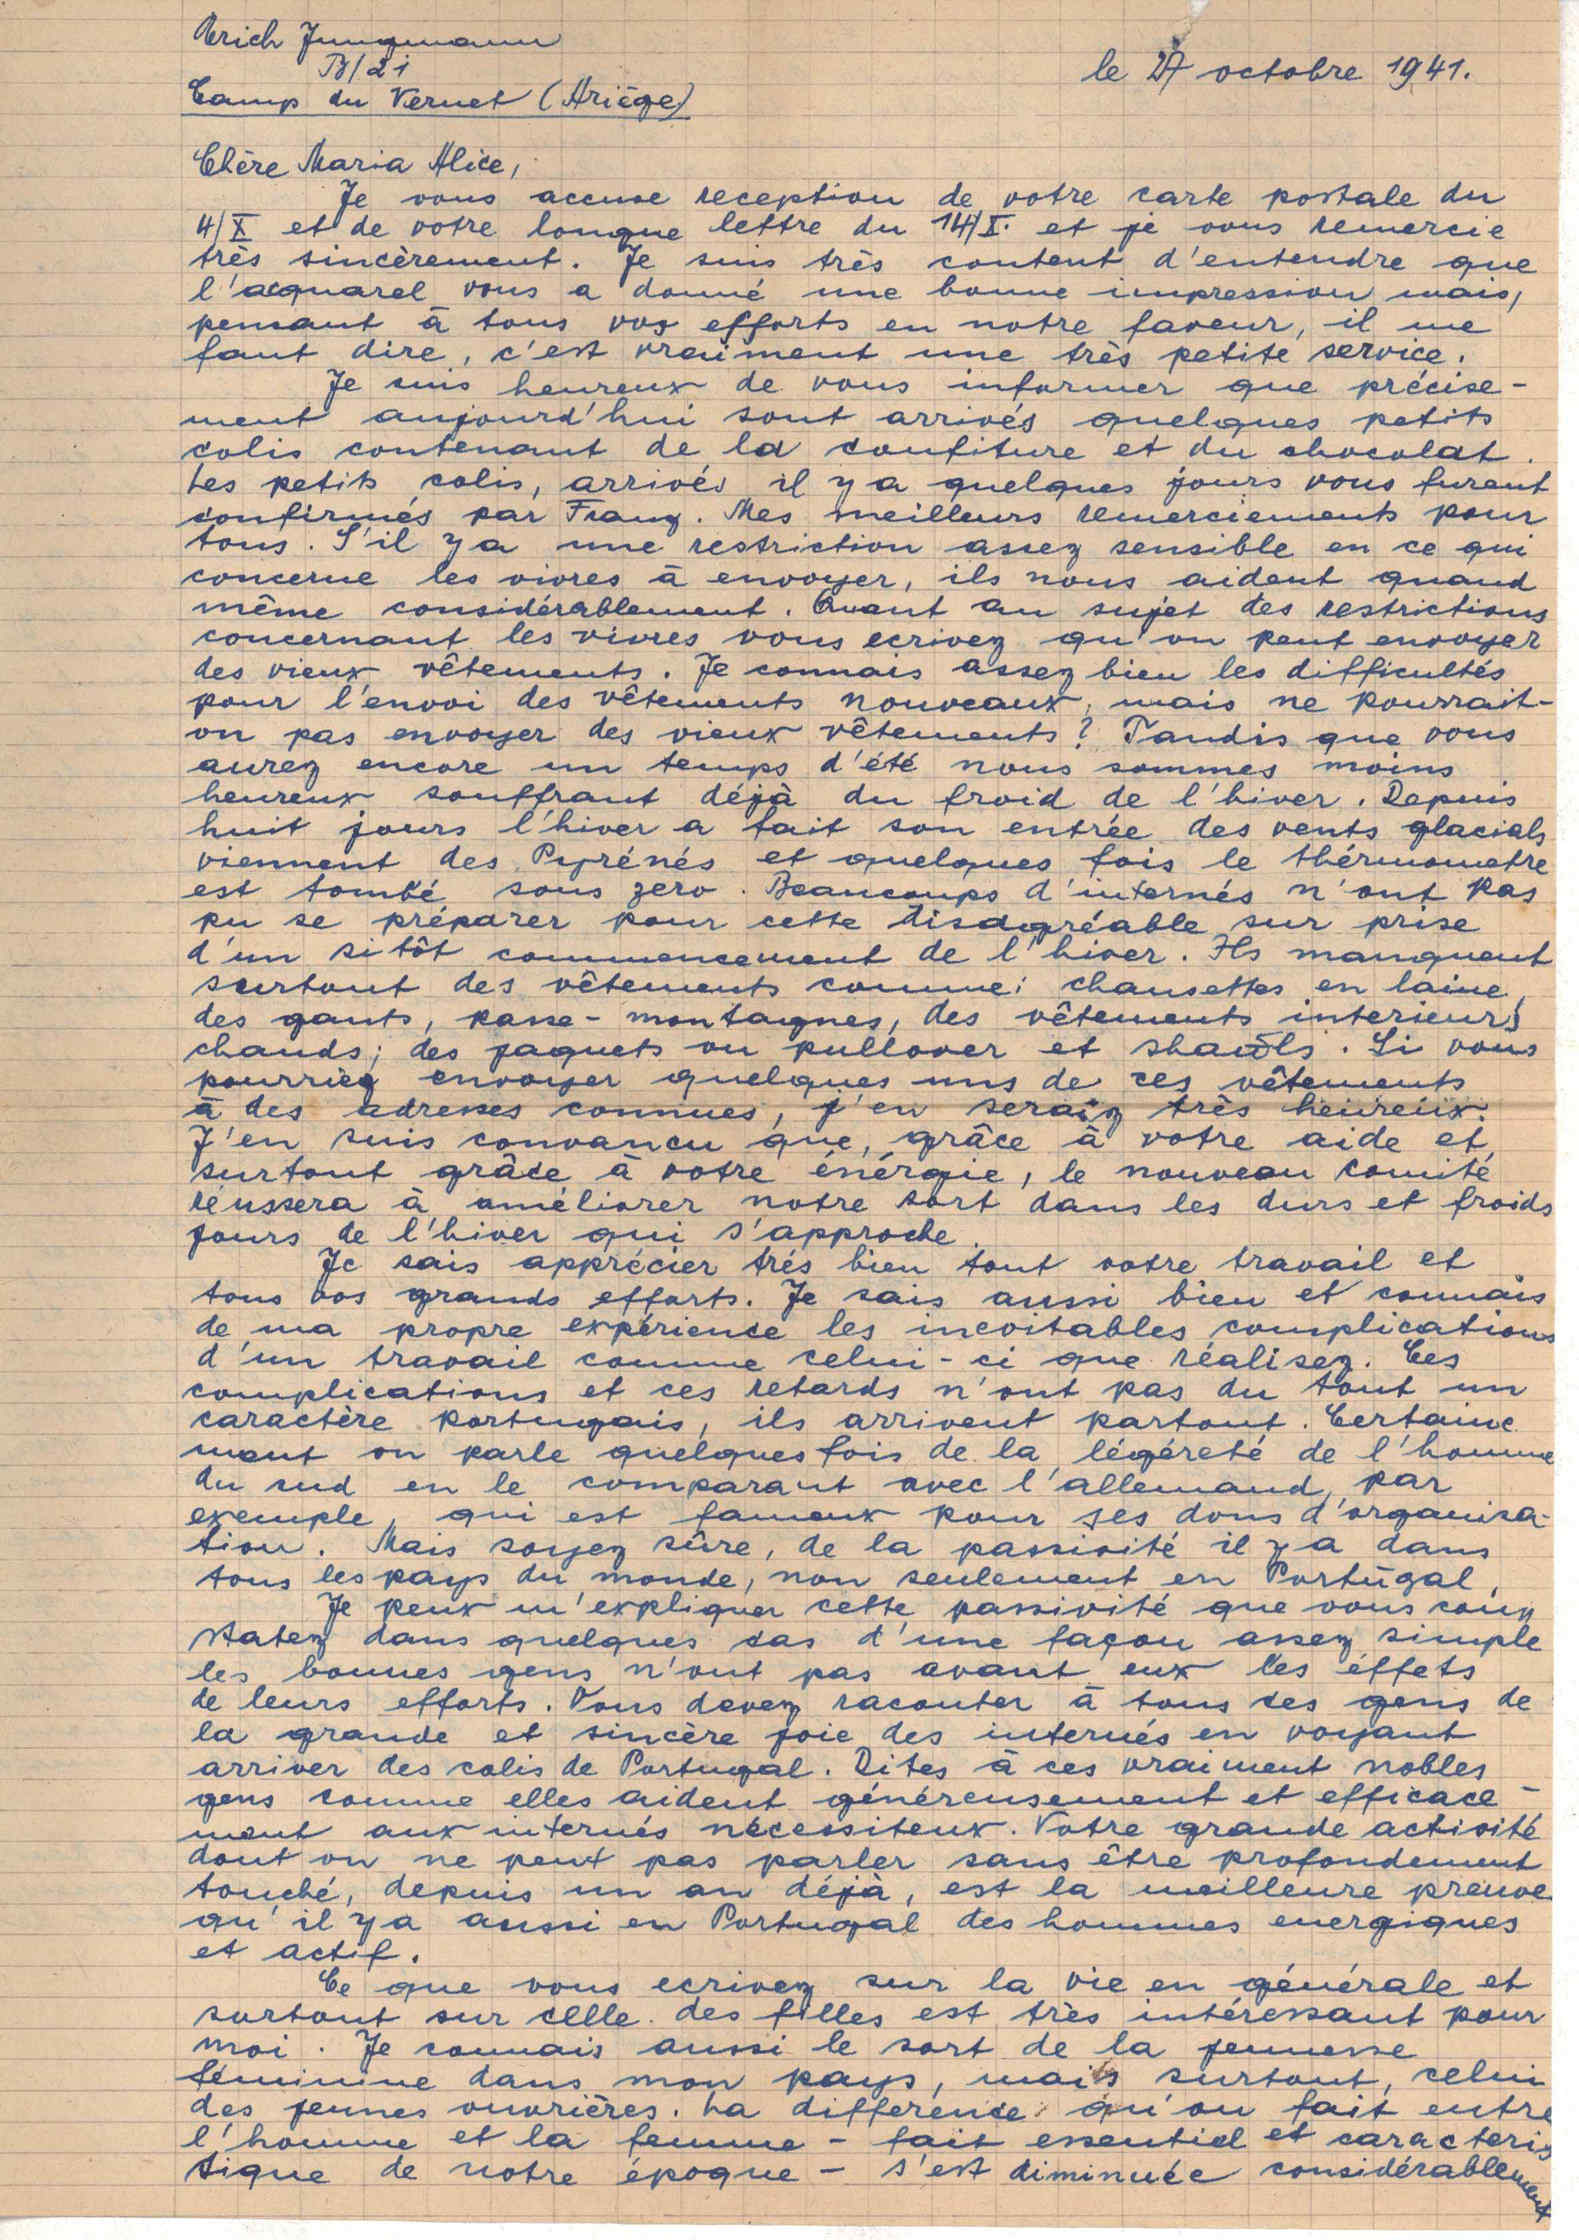 Erich Jungmann
B/21
Camp du Vernet (Ariège)
le 27 octobre 1941.
Chère Maria Alice,
Je vous accuse reception de votre carte postale du
4/X et de votre longue lettre du 14/X. et je vous remercie
très sincèrement. Je suis très content d'entendre que
l'acquarel vous a donné une bonne impression mais,
pensant à tous vos efforts en notre faveur, il me
faut dire, c'est vraiment une très petite service.
Je suis heureux de vous informer que précise-
ment aujourd'hui sont arrivés quelques petits
colis contenant de la confiture et du chocolat.
Les petits colis, arrivés il y a quelques jours vous furent
confirmés par Franz. Mes meilleurs remerciements pour
tous. S'il y a une restriction assez sensible en ce qui
concerne les vivres à envoyer, ils nous aident quand
même considérablement. Quant au sujet des restrictions
concernant les vivres vous ecrivez qu'on peut envoyer
des vieux vêtements. Je connais assez bien les difficultés
pour l'envoi des vêtements nouveaux, mais ne pourrait-
on pas envoyer des vieux vêtements? Tandis que vous
aurez encore un temps d'été nous sommes moins
heureux souffrant déjà du froid de l'hiver. Depuis
huit jours l'hiver a fait son entrée des vents glacials
viennent des Pyrénés et quelques fois le thérmometre
est tombé sous zero. Beaucoups d'internés n'ont pas
pu se préparer pour cette disagréable sur prise
d'un si tôt commencement de l'hiver. Ils manquent
surtout des vêtements comme: chausettes en laine,
des gants, passe-montagnes, des vêtements interieurs
chauds; des jaquets ou pullover et shawls. Si vous
pourriez envoyer quelques uns de ces vêtements
à des adresses connues, j'en seraiz très heureux.
J'en suis convancu que, grâce à votre aide et
surtout grâce à votre énérgie, le nouveau comité
réussera à améliorer notre sort dans les durs et froids
jours de l'hiver qui s'approche.
Je sais apprécier trés bien tout votre travail et
tous vos grands efforts. Je sais aussi bien et connais
de ma propre expérience les inevitables complications
d'un travail comme celui-ci que réalisez. Ces
complications et ces retards n'ont pas du tout un
caractère portugais, ils arrivent partout. Certaine
ment on parle quelques fois de la légéreté de l'homme
du sud en le comparant avec l'allemand, par
exemple, qui est fameux pour ses dons d'organisa-
tion. Mais soyez sûre, de la passivité il y a dans
tous les pays du monde, non seulement en Portugal,
Je peux m'expliquer cette passivité que vous cons
statez dans quelques cas d'une façon assez simple
les bonnes gens n'ont pas avant eux les éffets
de leurs efforts. Vous devez raconter à tous ces gens de
la grande et sincère joie des internés en voyant
arriver des colis de Portugal. Dites à ces vraiment nobles
gens comme elles aident généreusement et efficace-
ment aux internés nécessiteux. Votre grande activité
dont on ne peut pas parler sans être profondement
touché, depuis un an déjà, est la meilleure preuve
qu'il y a aussi en Portugal des hommes energiques
et actif.
Ce que vous ecrivez sur la vie en générale et
surtout sur celle des filles est très intéressant pour
moi. Je connais aussi le sort de la jeunesse
féminine dans mon pays, mais surtout, celui
des jeunes ouvrières. La difference qu'on fait entre
l'homme et la femme - fait essentiel et caracteris
tique de notre époque - s'est diminuée considérablement